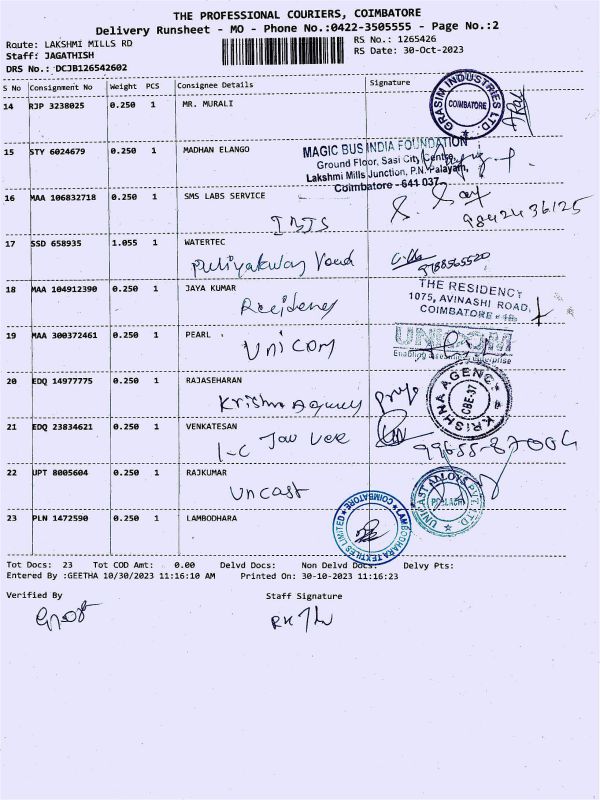 THE PROFESSIONAL COURIERS, COIMBATORE
Delivery Runsheet - MO - Phone No.:0422-3505555 - Page No.:2
Route: LAKSHMI MILLS RD
RS No.: 1265426
Staff: JAGATHISH
RS Date: 30-Oct-2023
DRS No.: DCJB126542602
S No Consignment No Weight PCS Consignee Details Signature
14 RJP 3238025 0.250 1 MR. MURALI
GRASIM INDUSTRIES LTD
COIMBATORE
15 STY 6024679 0.250 1 MADHAN ELANGO
MAGIC BUS INDIA FOUNDATION
Ground Floor, Sasi City Centre,
Lakshmi Mills Junction, P.N. Palayam,
Coimbatore - 641 037
16 MAA 106832718 0.250 1 SMS LABS SERVICE
9842436125
17 SSD 658935 1.055 1 WATERTEC
Road
9788565520
18 MAA 104912390 0.250 1 JAYA KUMAR
Residency
THE RESIDENCY
1075, AVINASHI ROAD,
COIMBATORE - 18
19 MAA 300372461 0.250 1 PEARL .
Unicom
UNICOM
Enabling Enterprise
20 EDQ 14977775 0.250 1 RAJASEHARAN
Krishna Agency
KRISHNA AGENCY
CBE-37
21 EDQ 23834621 0.250 1 VENKATESAN
99655-87004
22 UPT 8005604 0.250 1 RAJKUMAR
Uncast
UNICAST ALLOYS PVT. LTD.
POLLACHI
23 PLN 1472590 0.250 1 LAMBODHARA
LAMBODHARA TEXTILES LIMITED
COIMBATORE
Tot Docs: 23 Tot COD Amt: 0.00 Delvd Docs: Non Delvd Docs: Delvy Pts:
Entered By :GEETHA 10/30/2023 11:16:10 AM Printed On: 30-10-2023 11:16:23
Verified By Staff Signature